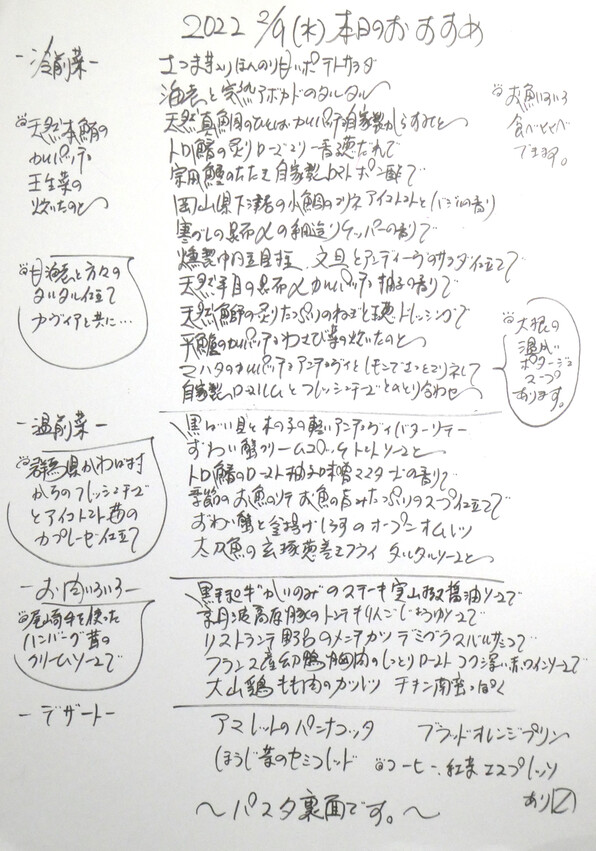 2022 2/9(水)本日のおすすめ
-冷前菜-
さつま芋入りほんのり甘いポテトサラダ
海老と完熟アボカドのタルタル
天然真鯛のひとくちカルパッチョ自家製からすみと
トロ鰆の炙りローズマリー香る葱だれで
自家製トマトポン酢で
岡山県下津井の小鯛のマリネ アイコトマトとバジルの香り
寒ブリの昆布〆の網造りケッパーの香りで
燻製 文旦とアンディーヴのサラダ仕立て
天然平目の昆布〆カルパッチョ 柚子の香りで
天然鰤の炙りたっぷりのねぎと ドレッシングで
平鱸のカルパッチョわさび菜の炊いたのと
マハタのカルパッチョアンディヴィとレモンでさっとマリネして
自家製ロースハムとフレッシュチーズとのとり合わせ
お魚いろいろ
食べくらべ
できます。
天然本鮪の
カルパッチョ
壬生菜の
炊いたのと
甘海老と方々の
タルタル仕立て
カヴィアと共に…
大根の
温かい
ポタージュ
スープ
あります。
-温前菜-
黒ばい貝と木の子の軽いアンチョヴィバターソテー
ずわい蟹クリームコロッケ トマトソースと
トロ鰆のロースト柚子味噌マスタードの香りで
季節のお魚のソテ お魚の旨みたっぷりのスープ仕立て
ずわい蟹と釜揚げしらすのオープンオムレツ
太刀魚の 葱巻きフライ タルタルソースと
群馬県かわば村
からのフレッシュチーズ
とアイコトマト
カプレーゼ仕立て
-お肉いろいろ-
黒毛和牛"かいのみ"のステーキ実山椒醤油ソースで
京丹波高原豚のトンテキりんごしょうゆソースで
リストランテ野呂のメンチカツ デミグラスバルサミコで
フランス産幼鴨胸肉のしっとりロースト コク深い赤ワインソースで
大山鶏もも肉のカツレツ チキン南蛮っぽく
尾崎牛を使った
ハンバーグ茸の
クリームソースで
-デザート-
アマレットのパンナコッタ
ブラッドオレンジプリン
ほうじ茶のセミフレッド
コーヒー、紅茶 エスプレッソ
あり
～パスタ裏面です。～